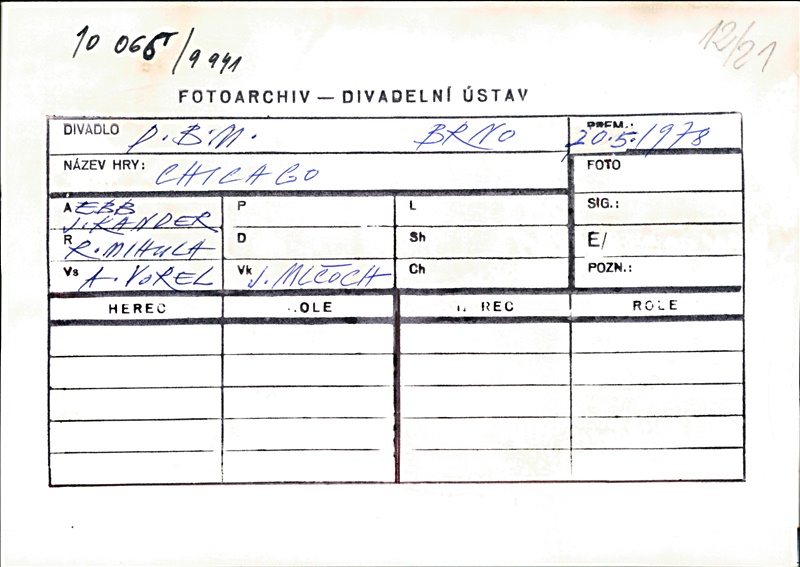 10 065/9941
12/21
FOTOARCHIV — DIVADELNÍ ÚSTAV
DIVADLO D.B.M. BRNO
PREM.: 20.5.1978
NÁZEV HRY: CHICAGO
FOTO
A EBB
J. KANDER
P
L
SIG.:
R R. MIHULA
D
Sh
E/
Vs A. VOREL
Vk J. MLČOCH
Ch
POZN.:
HEREC ROLE HEREC ROLE